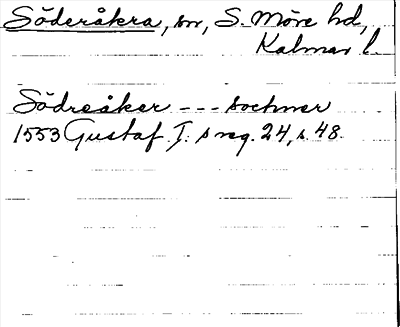 Söderåkra, sn, S. Möre hd,
Kalmar l.
Södreåker --- sochner
1553 Gustaf I:s reg. 24, s. 48.